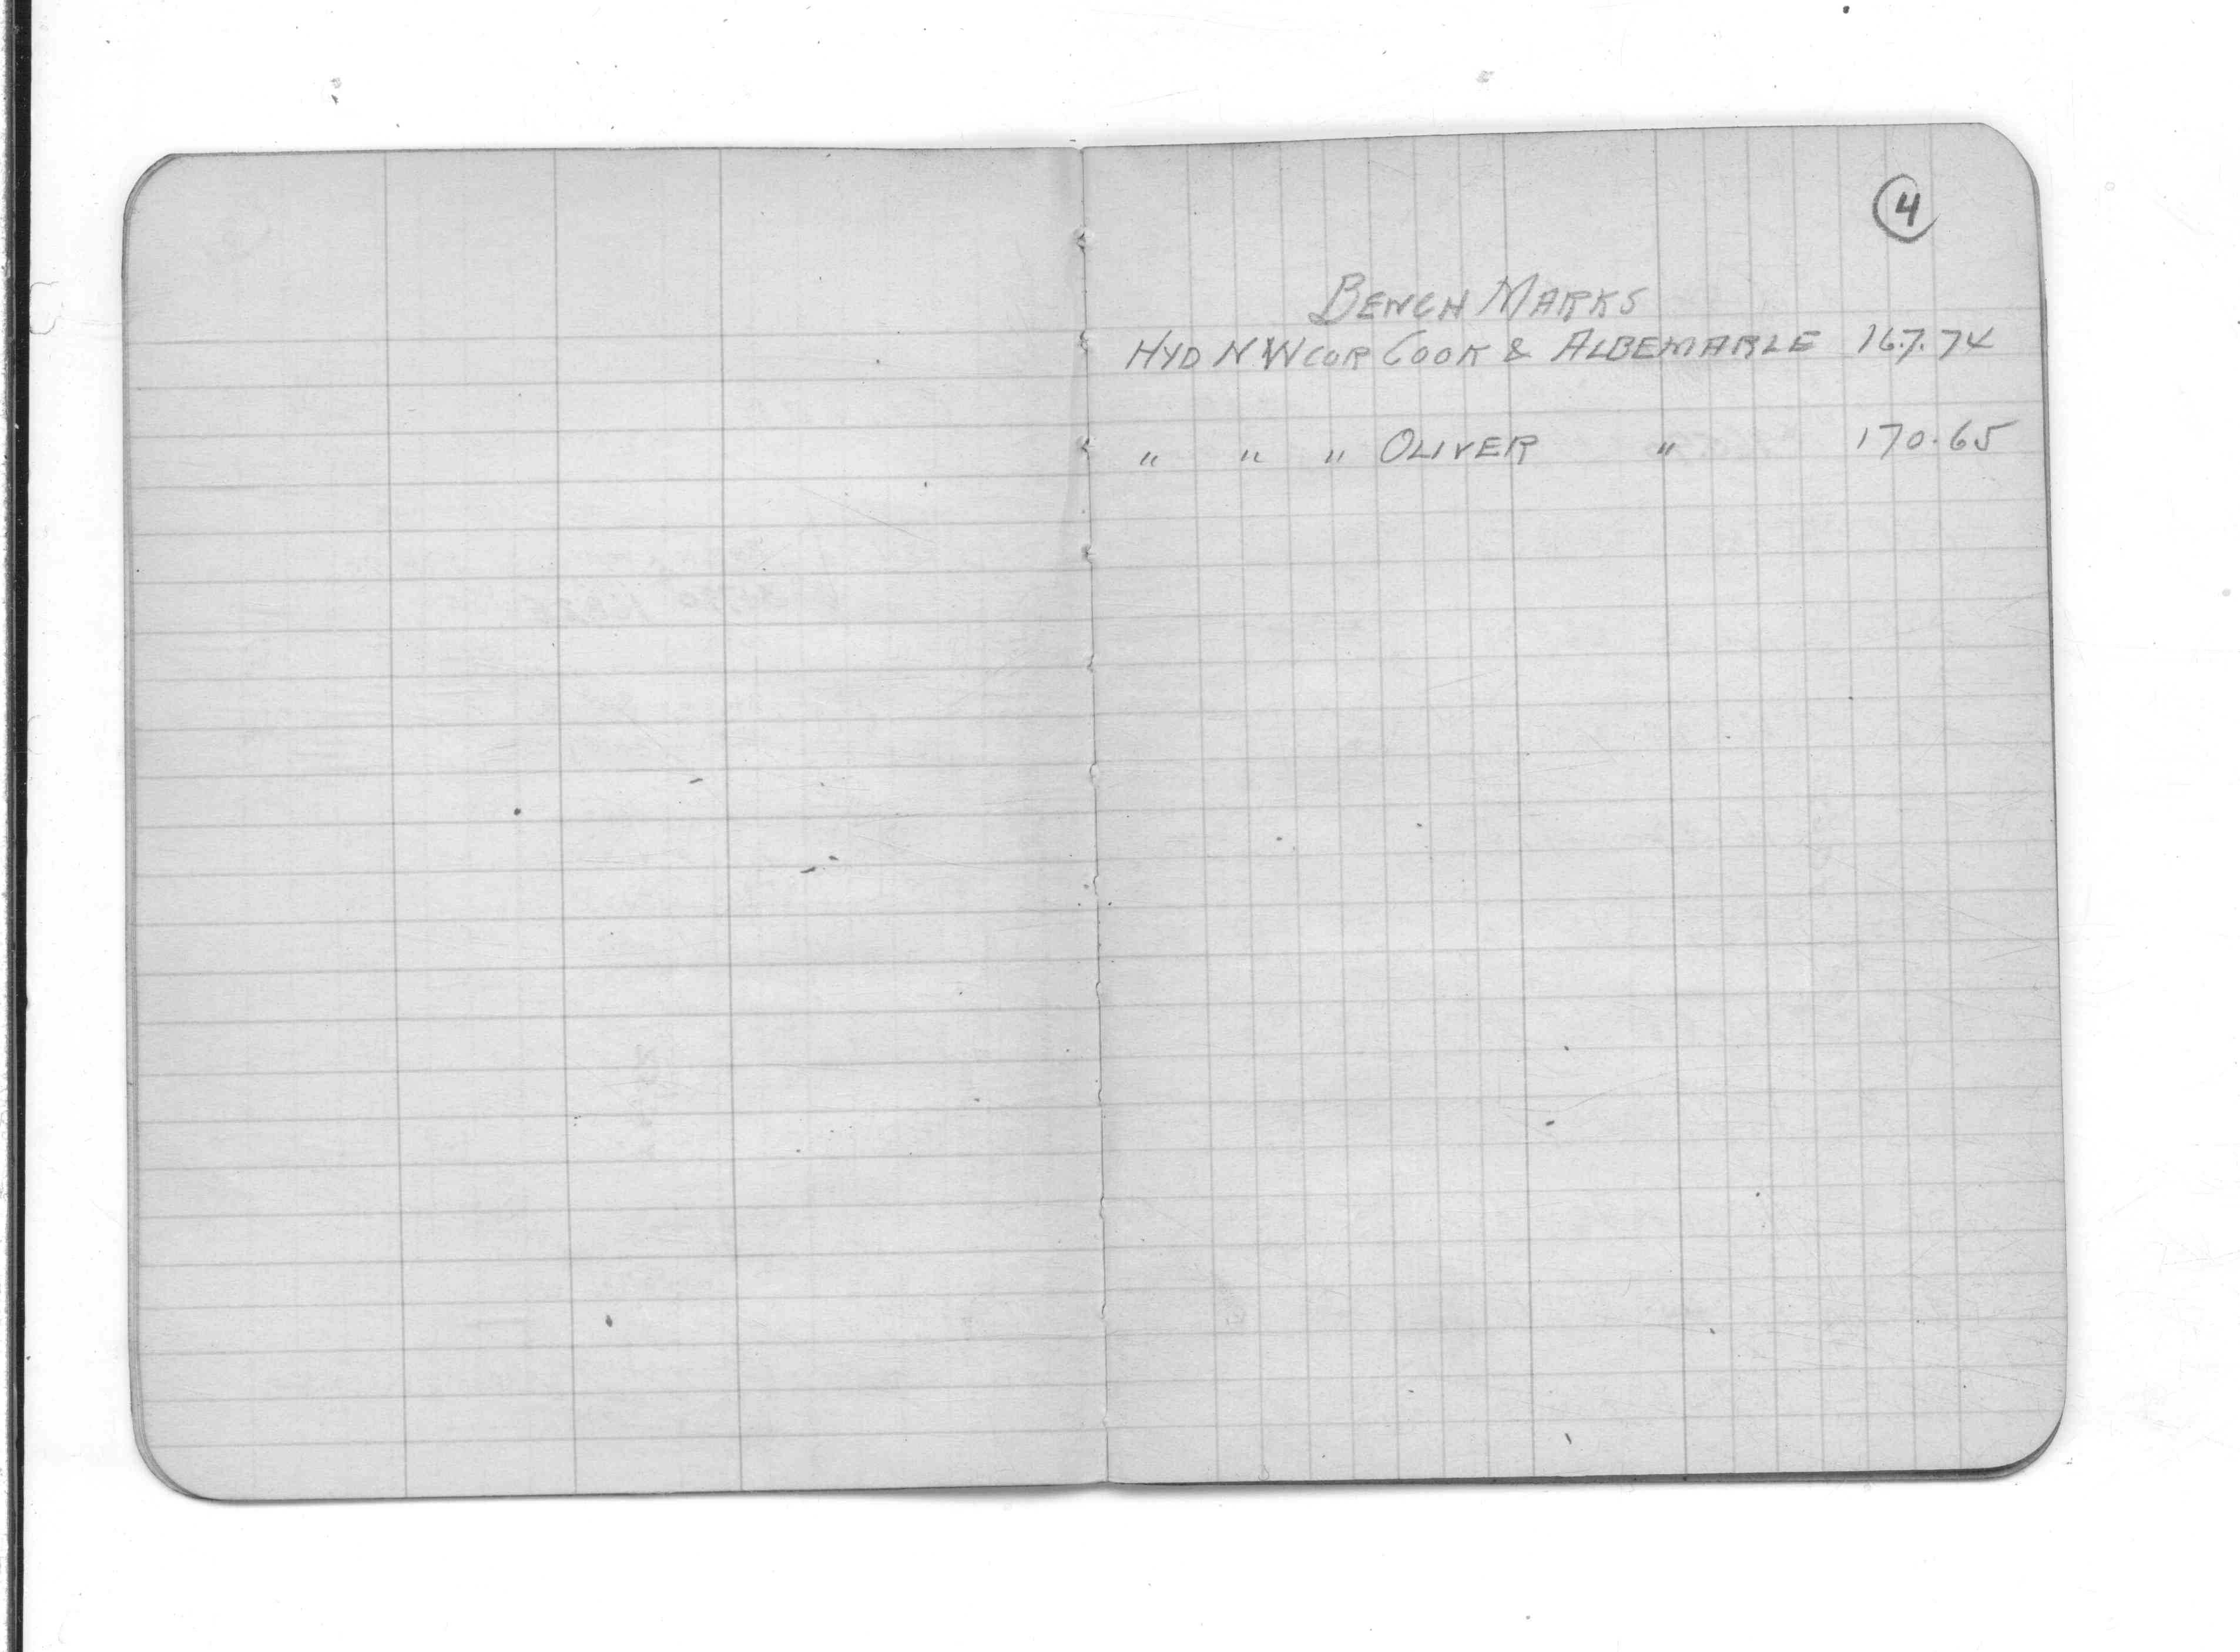 4
BENCH MARKS
HYD N W COR COOK & ALBEMARLE 167.74
" " " OLIVER " 170.65